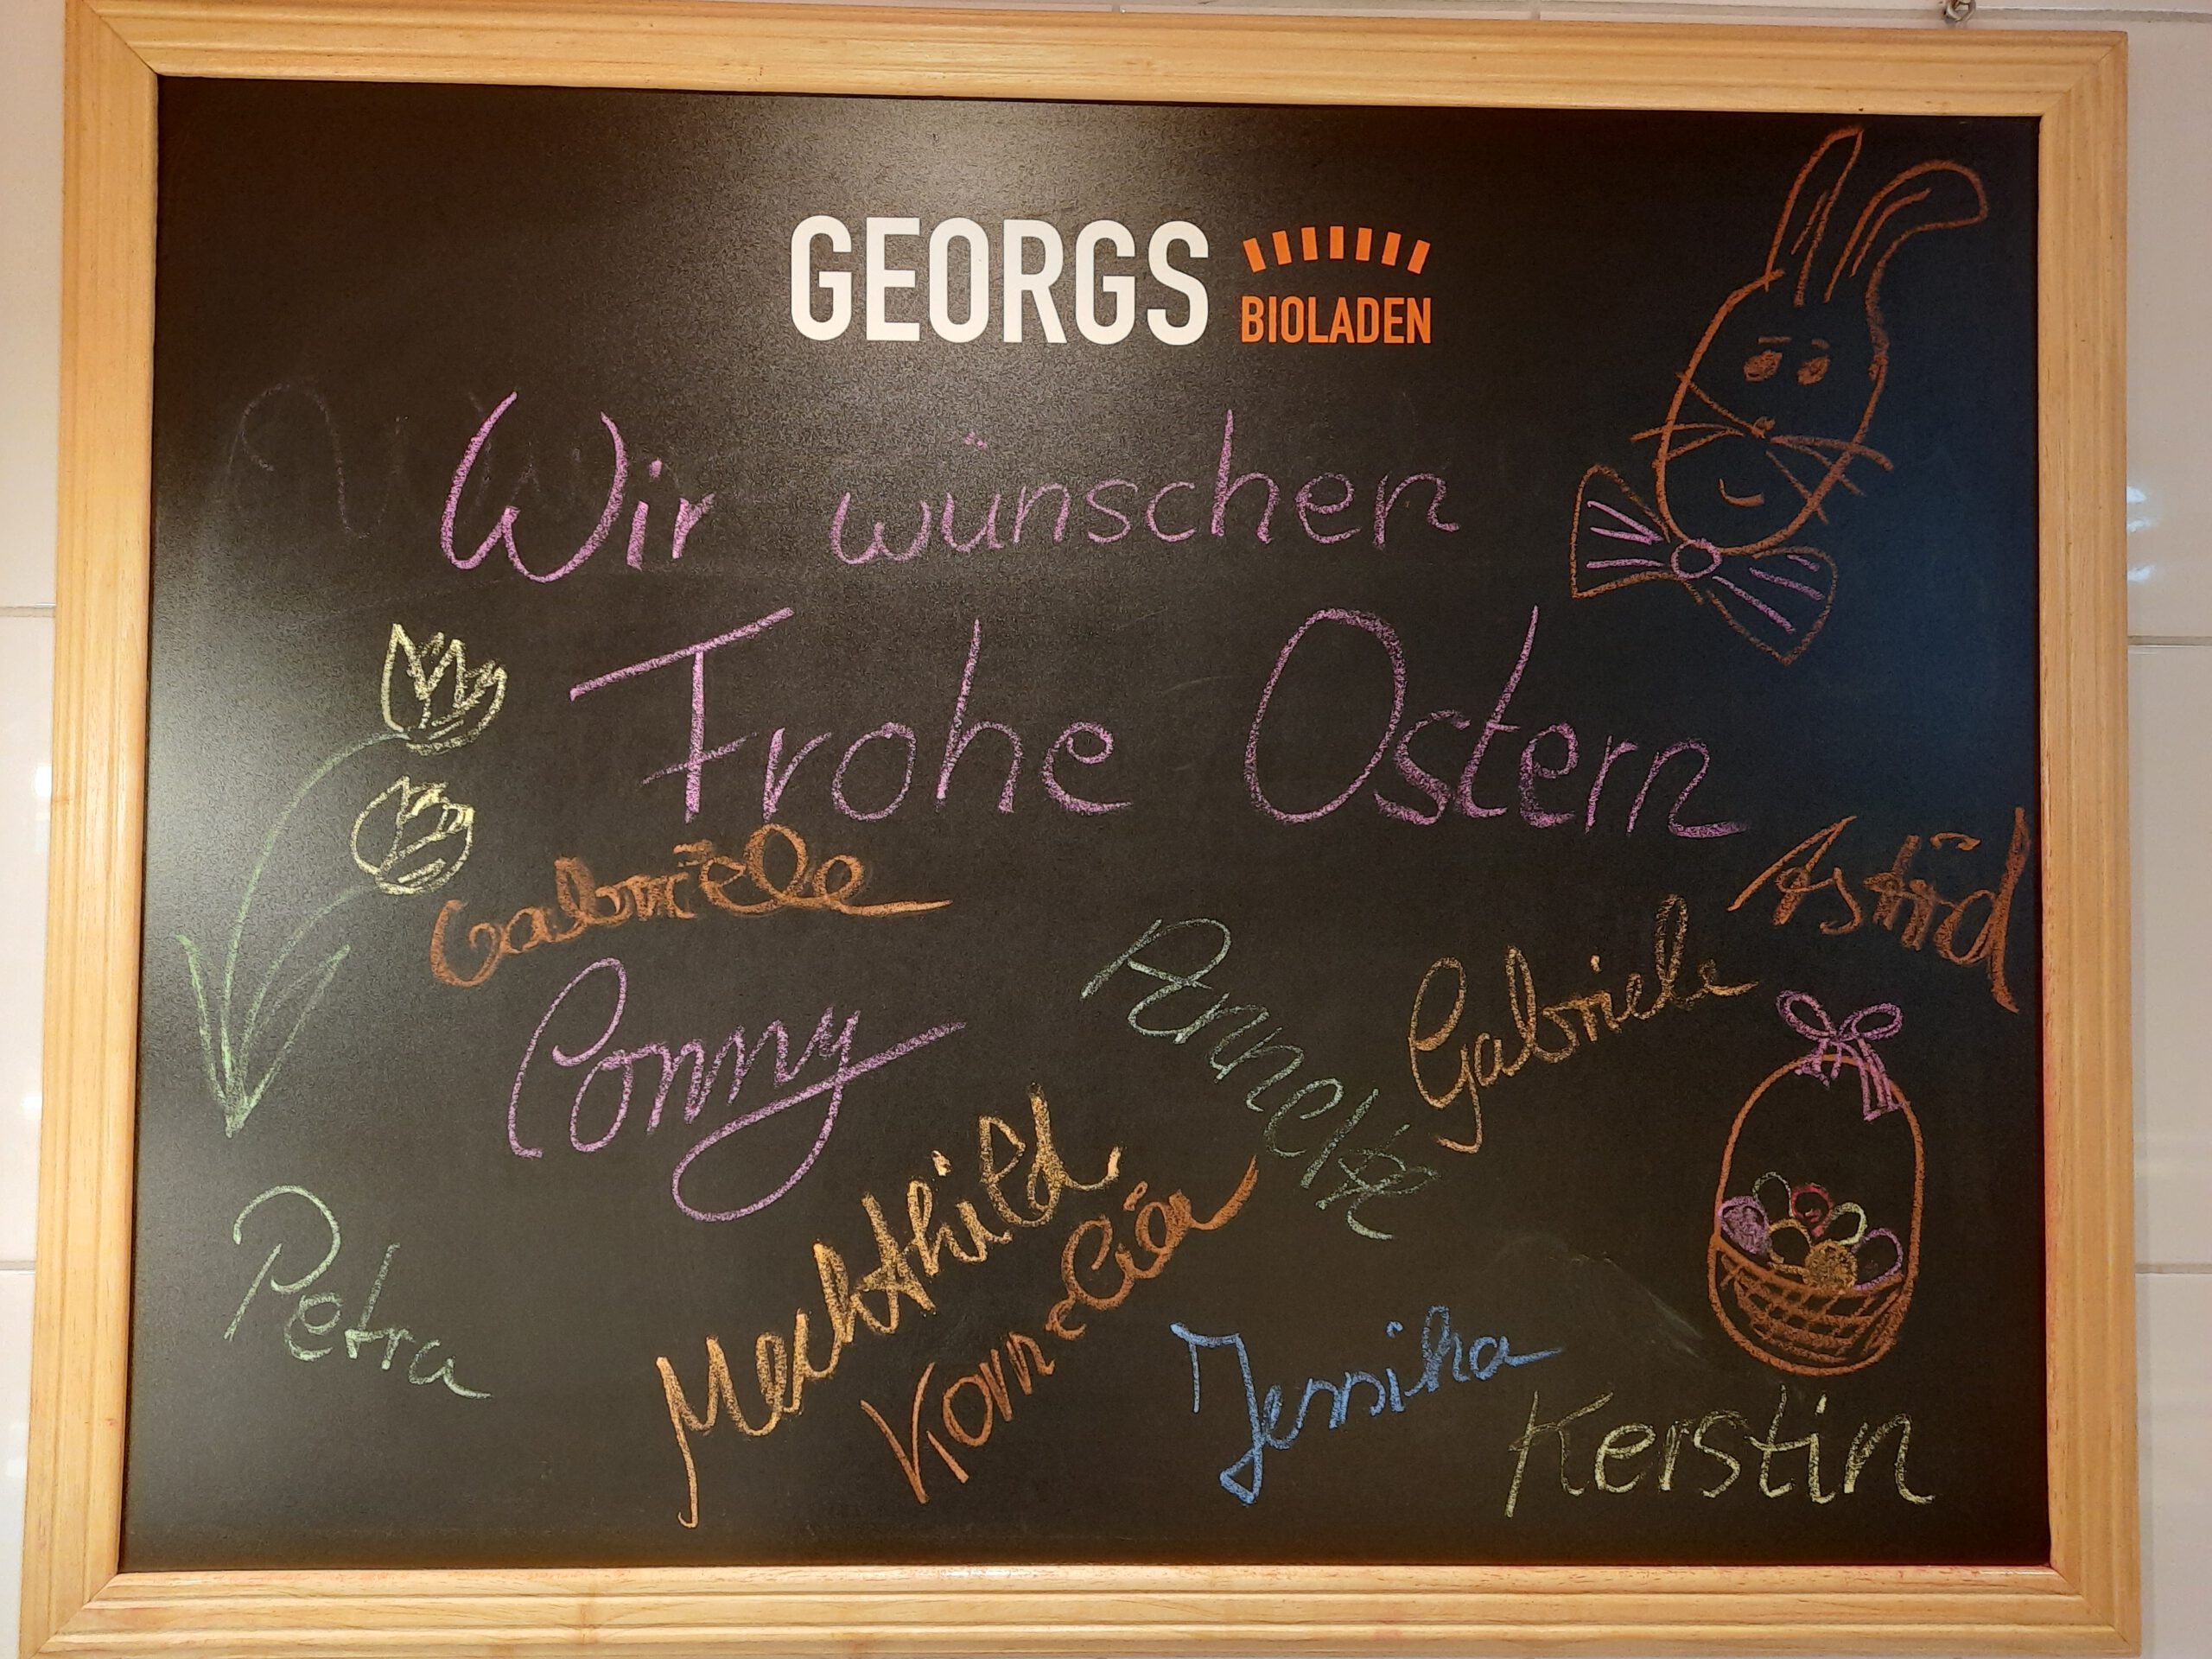 GEORGS BIOLADEN
Wir wünschen
Frohe Ostern
Gabriele
Astrid
Conny
Gabriele
Petra
Mechthild
Jessika
Kerstin